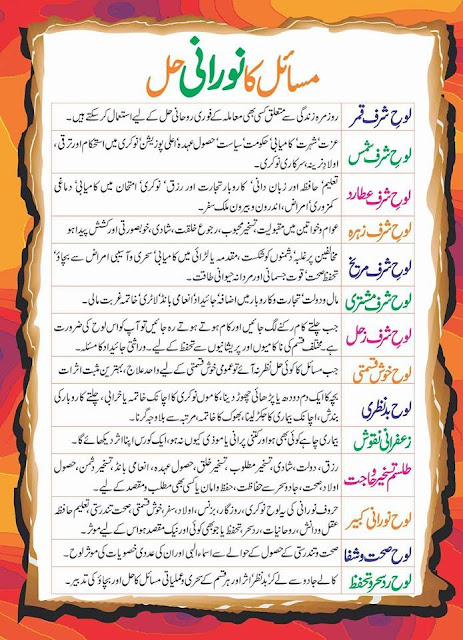 مسائل کا نورانی حل
لوح شرف قمر
روزمرہ زندگی سے متعلق کسی بھی معاملہ کے فوری روحانی حل کے لیے استعمال کرسکتے ہیں۔
لوح شرف شمس
عزت' شہرت' کامیابی' حکومت' سیاست' حصول عہدہ' اعلیٰ پوزیشن' نوکری میں استحکام اور ترقی،
اولاد نرینہ، سرکاری نوکری۔
لوح شرف عطارد
تعلیم' حافظہ اور زبان دانی' کاروبار تجارت اور رزق' نوکری' امتحان میں کامیابی' دماغی
کمزوری' امراض، اندرون و بیرون ملک سفر۔
لوح شرف زہرہ
عوام و خواتین میں مقبولیت، تسخیر محبوب، رجوع خلقت، شادی، خوبصورتی اور کشش پیدا ہو
لوح شرف مریخ
مخالفین پر غلبہ' دشمنوں کو شکست، مقدمہ یا لڑائی میں کامیابی' سحری و آسیبی امراض سے بچاؤ'
تحفظ صحت' قوت جسمانی اور مردانہ حیوانی طاقت۔
لوح شرف مشتری
مال و دولت' تجارت و کاروبار میں اضافہ' جائیداد' انعامی بانڈ' لاٹری' خاتمہ غربت مالی۔
لوح شرف زحل
جب چلتے کام رکنے لگ جائیں اور کام ہوتے ہوتے رہ جائیں تو آپ کو اس لوح کی ضرورت
ہے۔ مختلف قسم کی ناکامیوں اور پریشانیوں سے تحفظ کے لیے۔ وراثتی جائیداد کا مسئلہ۔
لوح خوش قسمتی
جب مسائل کا کوئی حل نظر نہ آئے تو عمومی خوش قسمتی کے لیے واحد علاج، بہترین مثبت اثرات
لوح بدنظری
بچے کا ایک دم دودھ یا پڑھائی چھوڑ دینا، کاموں نوکری کا اچانک خاتمہ یا خرابی، چلتے کاروبار کی
بندش، اچانک بیماری کا جکڑ لینا، بھوک کا خاتمہ، مرتبہ سے بلاوجہ گرنا۔
زعفرانی نقوش
بیماری چاہے کوئی بھی ہو اور کتنی پرانی یا موذی کیوں نہ ہو، ایک کورس اپنا اثر دیکھائے گا۔
طلسم تسخیر و حاجت
رزق، دولت، شادی، تسخیر مطلوب، تسخیر خلق، حصول عہدہ، انعامی بانڈ، تسخیر دشمن، حصول
اولاد، صحت، جادو سحر سے حفاظت، حفظ و امان یا کسی بھی مطلب و مقصد کے لیے۔
لوح نورانی کبیر
حروف نورانی کی یہ لوح نوکری، روزگار، بزنس، اولاد، سفر، خوش قسمتی، صحت تندرستی تعلیم حافظہ
عقل و دانش، روحانیات، رد سحر، تحفظ یا جو بھی کوئی اور نیک مقصد ہو اس کے لیے موثر۔
لوح صحت و شفا
صحت و تندرستی کے حصول کے حوالے سے اسماء الٰہی اور ان کی عددی خصوصیات کی موثر لوح۔
لوح رد سحر و تحفظ
کالے جادو سے لے کر' بدنظر' اثر اور ہر قسم کے سحری و عملیاتی مسائل کا حل اور بچاؤ کی تدبیر۔